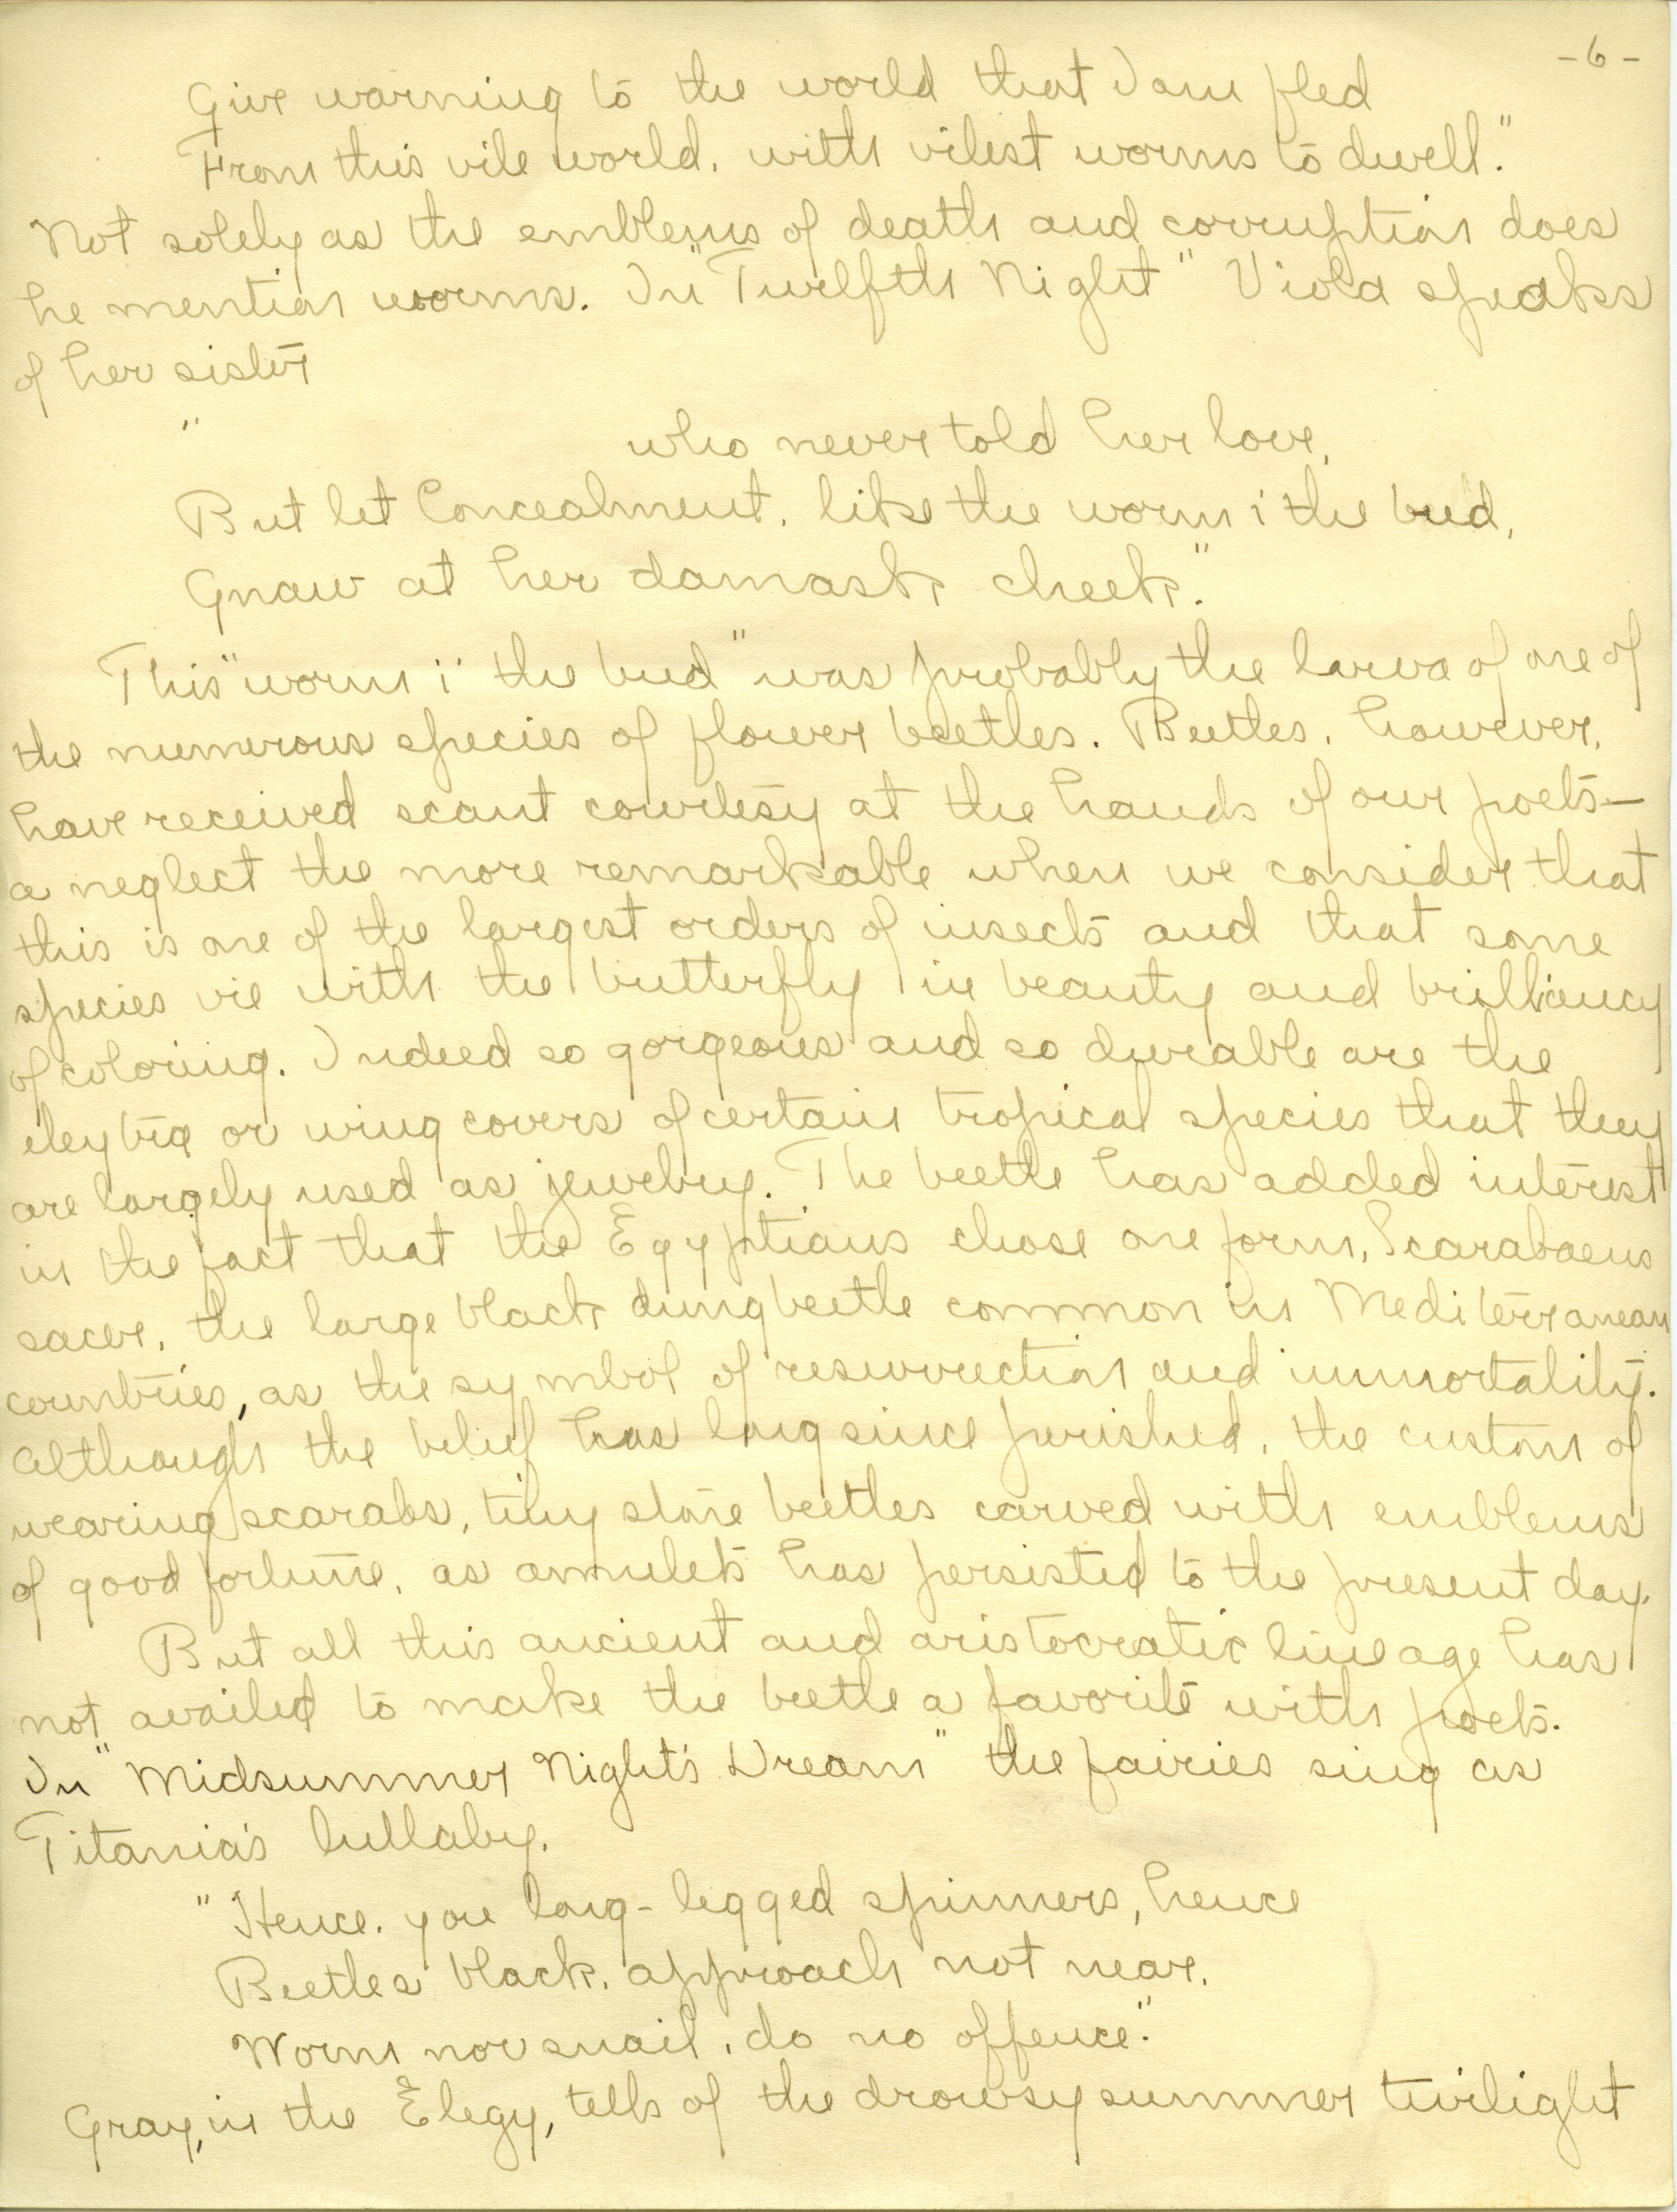 -6-
Give warning to the world that I am fled
From this vile world, with vilest worms to dwell."
Not solely as the emblems of death and corruption does
he mention worms. In "Twelfth Night" Viola speaks
of her sister
" who never told her love,
But let Concealment, like the worm i' the bud,
Gnaw at her damask cheek."
This "worm i' the bud" was probably the larva of one of
the numerous species of flower beetles. Beetles, however,
have received scant courtesy at the hands of our poets—
a neglect the more remarkable when we consider that
this is one of the largest orders of insects and that some
species vie with the butterfly in beauty and brilliancy
of coloring. Indeed so gorgeous and so durable are the
eleytra or wing covers of certain tropical species that they
are largely used as jewelry. The beetle has added interest
in the fact that the Egyptians chose one form, Scarabaeus
sacer, the large black dung beetle common in Mediterranean
countries, as the symbol of resurrection and immortality.
Although the belief has long since perished, the custom of
wearing scarabs, tiny stone beetles carved with emblems
of good fortune, as amulets has persisted to the present day.
But all this ancient and aristocratic lineage has
not availed to make the beetle a favorite with poets.
In "Midsummer Night's Dream" the fairies sing as
Titania's lullaby,
"Hence, you long-legged spinners, hence
Beetles black, approach not near,
Worm nor snail, do no offence."
Gray, in the Elegy, tells of the drowsy summer twilight